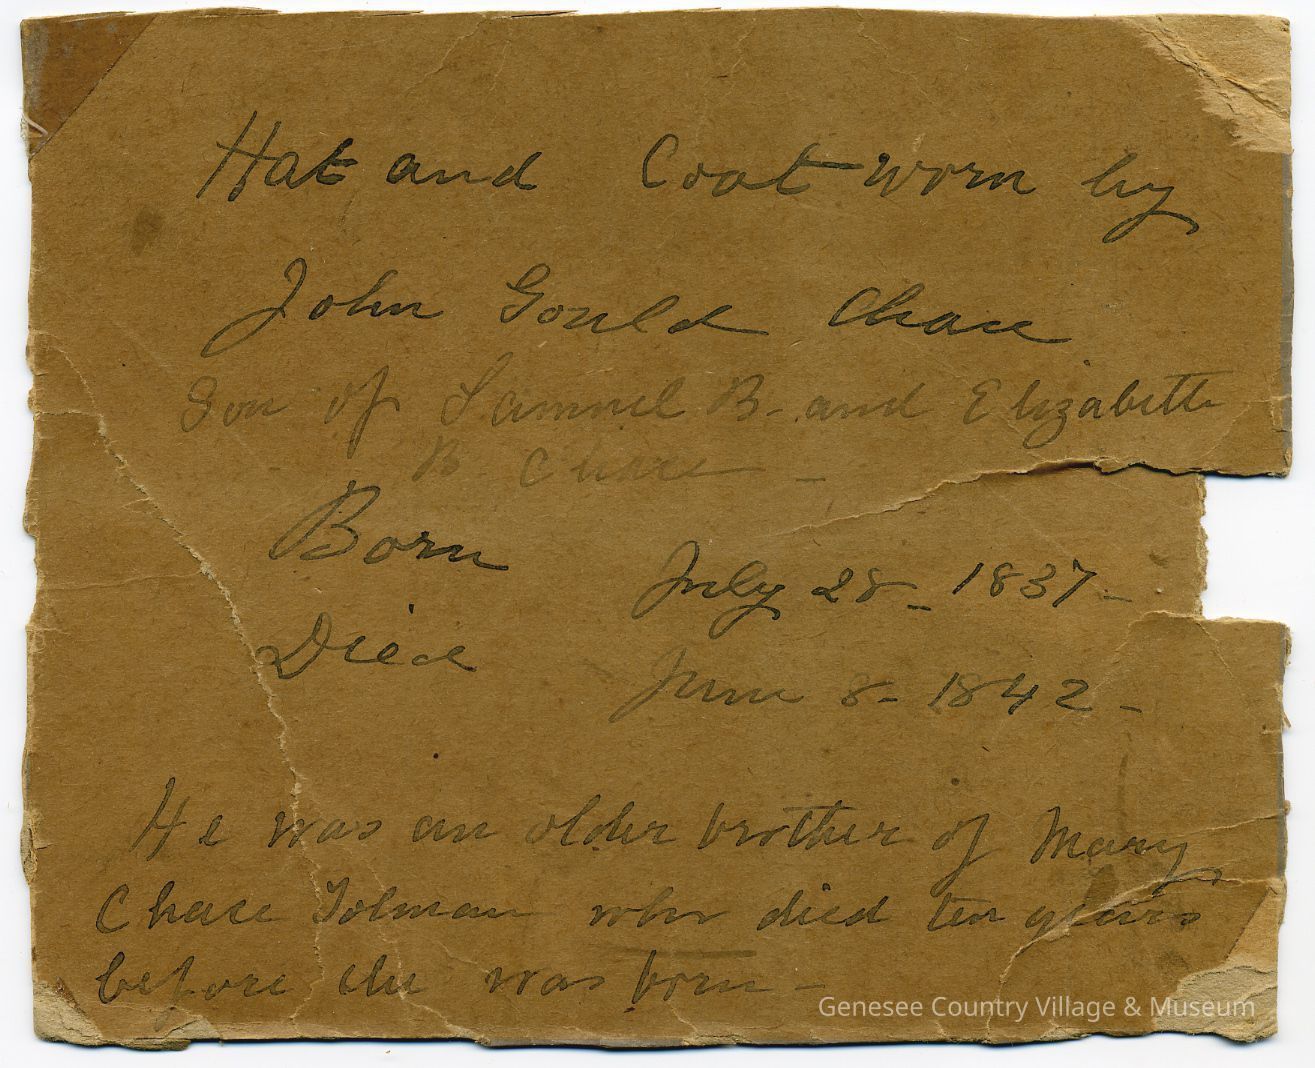 Hat and Coat worn by
John Gould Chase
Son of Samuel B. and Elizabeth
B. Chase -
Born July 28 - 1837 -
Died June 8 - 1842 -
He was an older brother of Mary
Chase Tolman who died ten years
before she was born -
Genesee Country Village & Museum